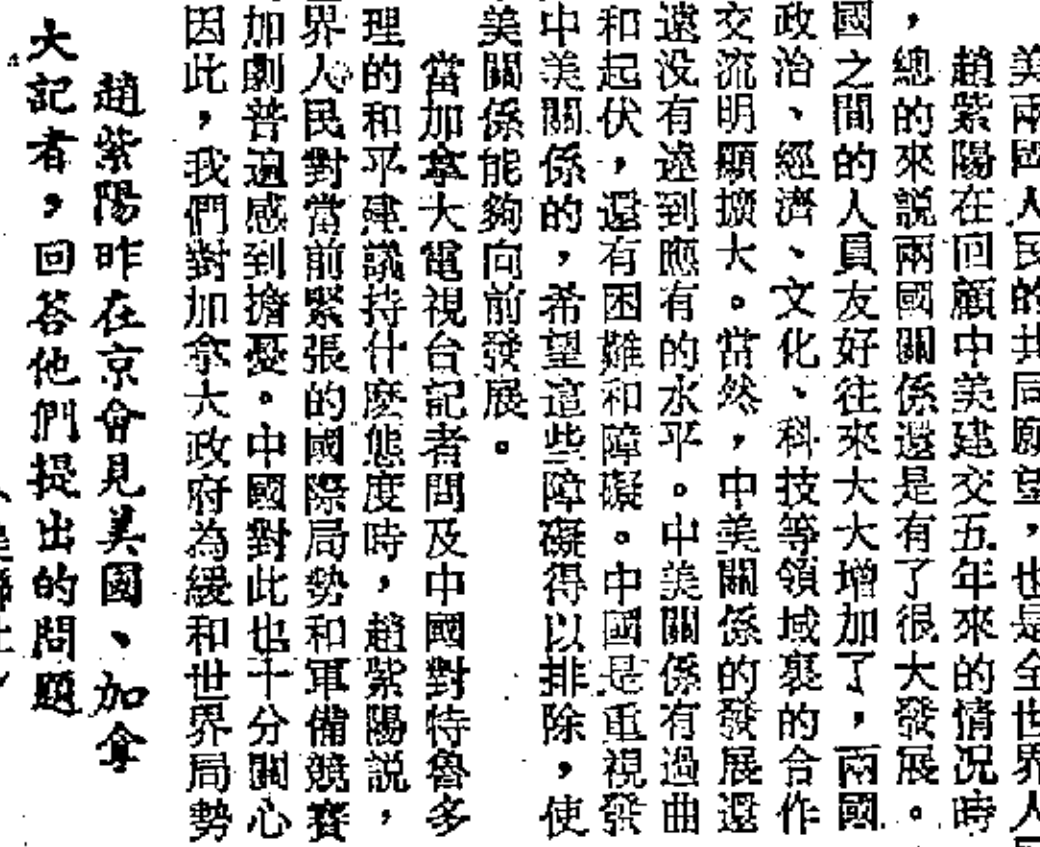 美兩國人民的共同願望，也是全世界人
趙紫陽在回顧中美建交五年來的情况時
，總的來説兩國關係還是有了很大發展。
國之間的人員友好往來大大增加了，兩國
政治、經濟、文化、科技等領域裏的合作
交流明顯擴大。當然，中美關係的發展還
遠没有達到應有的水平。中美關係有過曲
和起伏，還有困難和障礙。中國是重視發
中美關係的，希望這些障礙得以排除，使
美關係能夠向前發展。
當加拿大電視台記者問及中國對特魯多
理的和平建議持什麽態度時，趙紫陽説，
界人民對當前緊張的國際局勢和軍備競賽
加劇普遍感到擔憂。中國對此也十分關心
因此，我們對加拿大政府為緩和世界局勢
趙紫陽昨在京會見美國、加拿
大記者，回答他們提出的問題